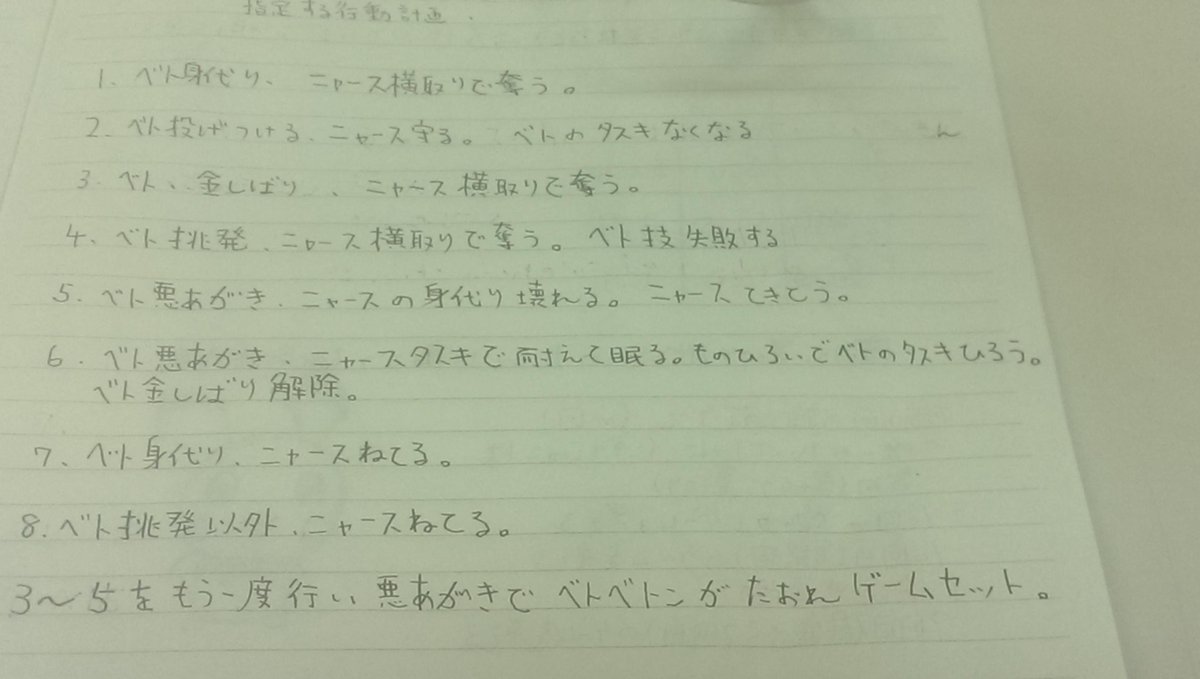 指定する行動計画.
1. ベト身代り、ニャース横取りで奪う。
2. ベト投げつける、ニャース守る。ベトのタスキなくなる
ん
3. ベト、金しばり、ニャース横取りで奪う。
4、ベト挑発、ニャース横取りで奪う。ベト技失敗する
5. ベト悪あがき、ニャースの身代り壊れる。ニャースてきとう。
6. ベト悪あがき、ニャースタスキで耐えて眠る。ものひろいでベトのタスキひろう。
ベト金しばり解除。
7、ベト身代り、ニャースねてる。
8. ベト挑発以外、ニャースねてる。
3〜5をもう一度行い悪あがきでベトベトンがたおれゲームセット。